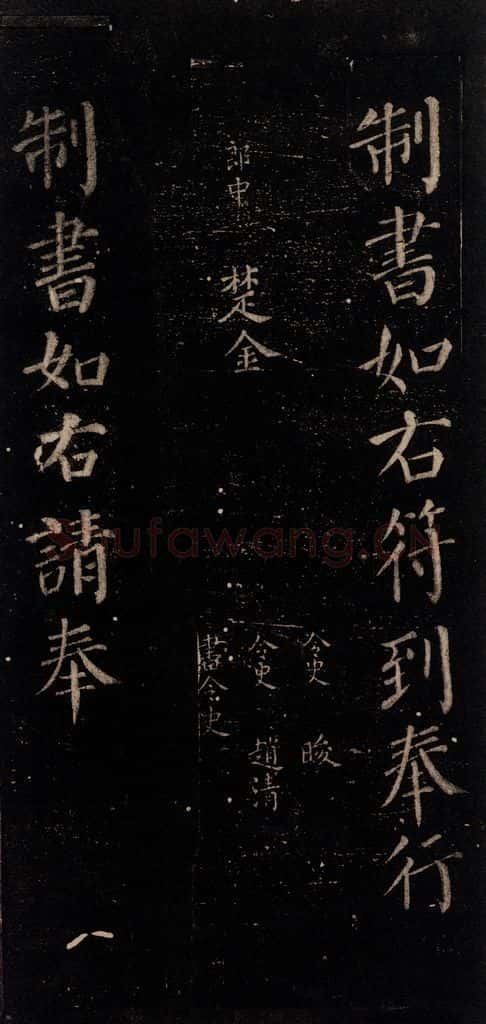 制書如右符到奉行
令史 晙
郎中 楚金 令史 趙清
書令史
制書如右請奉
八
shufawang.cn